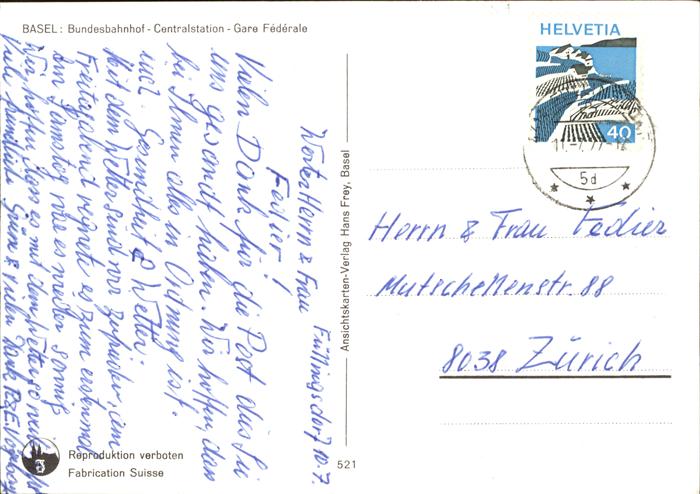 BASEL: Bundesbahnhof - Centralstation - Gare Fédérale
HELVETIA
40
5d
Füllinsdorf 10.7.
Werter Herrn & Frau
Fedier!
Vielen Dank für die Post das Sie
uns gesandt haben. Wir hoffen, dass
bei Ihnen alles in Ordnung ist.
Gesundheit & Wetter.
Mit dem Wetter sind wir zufrieden, am
Freitagabend regnete es zum erstenmal
am Samstag war es wieder sonnig
Wir hoffen dass es mit dem Wetter so
Viele freundliche Grüsse & vielen Dank
Herrn & Frau Fedier
Mutschellenstr. 88
8038 Zürich
Ansichtskarten-Verlag Hans Frey, Basel
Reproduktion verboten
Fabrication Suisse
521